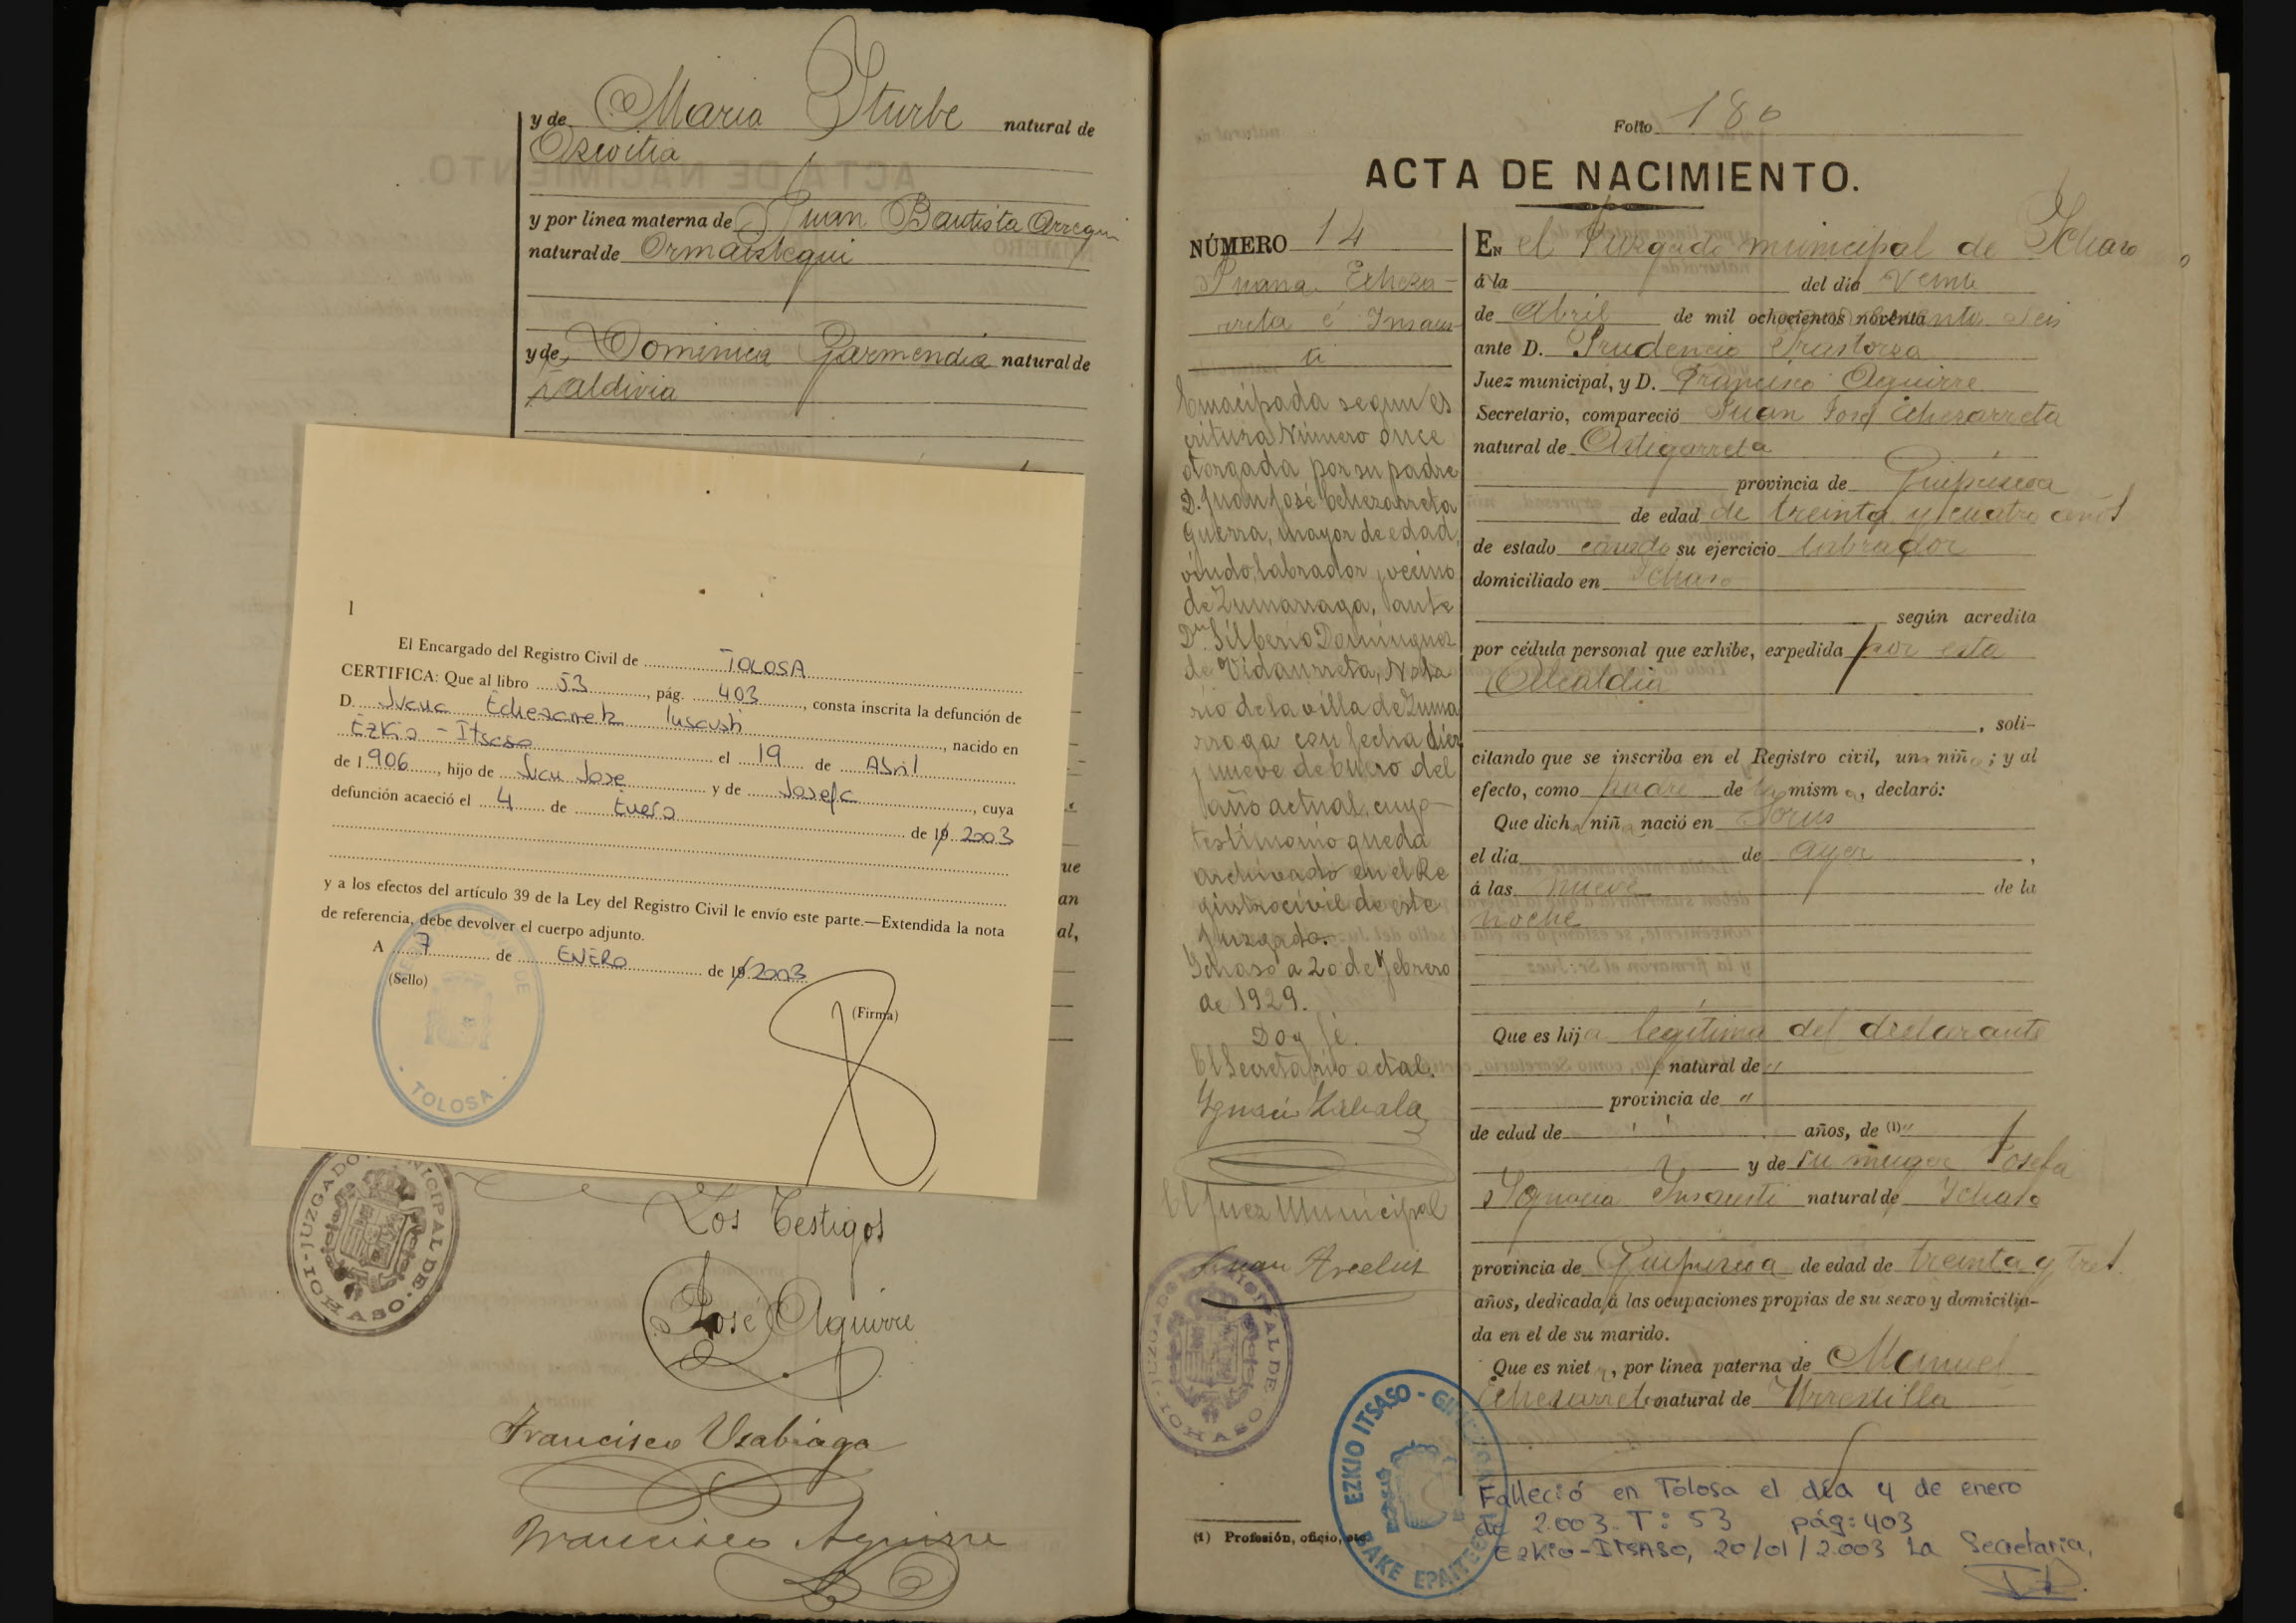 y de Maria Yturbe natural de
Azcoitia
y por línea materna de Juan Bautista Arregui
natural de Ormaiztegui
y de Dominica Garmendia natural de
Zaldivia
1
El Encargado del Registro Civil de TOLOSA
CERTIFICA: Que al libro 53, pág. 403, consta inscrita la defunción de
D. Juana Echezarreta Insausti
EZKio - Itsaso, nacido en
el 19 de Abril
de 1906, hijo de Juan Jose y de Josefa, cuya
defunción acaeció el 4 de Enero
de 19 2003
y a los efectos del artículo 39 de la Ley del Registro Civil le envío este parte.—Extendida la nota
de referencia, debe devolver el cuerpo adjunto.
A 7 de ENERO de 19 2003
(Sello)
(Firma)
TOLOSA
ue
an
al,
JUZGADO MUNICIPAL DE ICHASO
Los Testigos
José Aguirre
Francisco Usabiaga
Francisco Aguirre
Folio 180
ACTA DE NACIMIENTO.
NÚMERO 14
Juana Echeza-
rreta é Insaus-
ti
Emacipada segun es
critura Número once
otorgada por su padre
D. Juan José Echezarreta
Guerra, mayor de edad,
viudo, labrador, vecino
de Zumarraga, ante
Dn. Silberio Dominguez
de Vidaurreta, Nota
rio de la villa de Zuma
rraga con fecha diez
y nueve de Enero del
año actual, cuyo
testimonio queda
archivado en el Re
gistro civil de este
Juzgado.
Ychaso a 20 de Febrero
de 1929.
Doy fé.
El Secretario actal.
Ygnacio Zabala
El Juez Municipal
Juan Arcelus
JUZGADO MUNICIPAL DE ICHASO
EN el Juzgado municipal de Ychaso
á la del dia veinte
de Abril de mil ochocientos noventa seis
ante D. Prudencio Irastorza
Juez municipal, y D. Francisco Aguirre
Secretario, compareció Juan José Echezarreta
natural de Astigarreta
provincia de Guipúzcoa
de edad de treinta y cuatro años
de estado casado su ejercicio labrador
domiciliado en Ychaso
según acredita
por cédula personal que exhibe, expedida por esta
Alcaldia
, soli-
citando que se inscriba en el Registro civil, una niña; y al
efecto, como padre de la misma, declaró:
Que dicha niña nació en
el dia de ayer,
á las nueve de la
noche
Que es hija legítima del declarante
natural de "
provincia de "
de edad de " años, de (1) "
y de su muger Josefa
Ygnacia Insausti natural de Ychaso
provincia de Guipuzcoa de edad de treinta y tres
años, dedicada á las ocupaciones propias de su sexo y domicilia-
da en el de su marido.
Que es nieta, por línea paterna de Manuel
Echezarreta natural de Urrestilla
Falleció en Tolosa el día 4 de enero
de 2.003. T: 53 pág: 403
Ezkio-ITSASO, 20/01/2.003 La Secretaria,
EZKIO ITSASO - BAKE EPAITEGIA
(1) Profesión, oficio, etc.